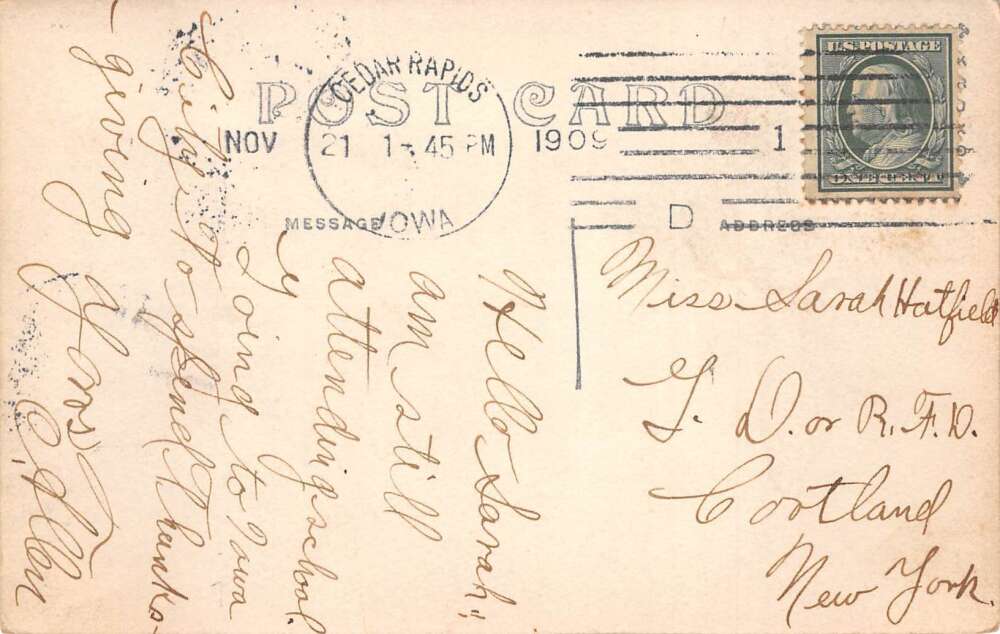 POST CARD
CEDAR RAPIDS
NOV 21 1-45 PM 1909
IOWA
1
D
U.S. POSTAGE
ONE CENT
MESSAGE
ADDRESS
Miss Sarah Hatfield
G. D. or R. F. D.
Cortland
New York.
Hello Sarah!
am still
attending school.
Going to Iowa
City to spend Thanks-
giving
C. Allen